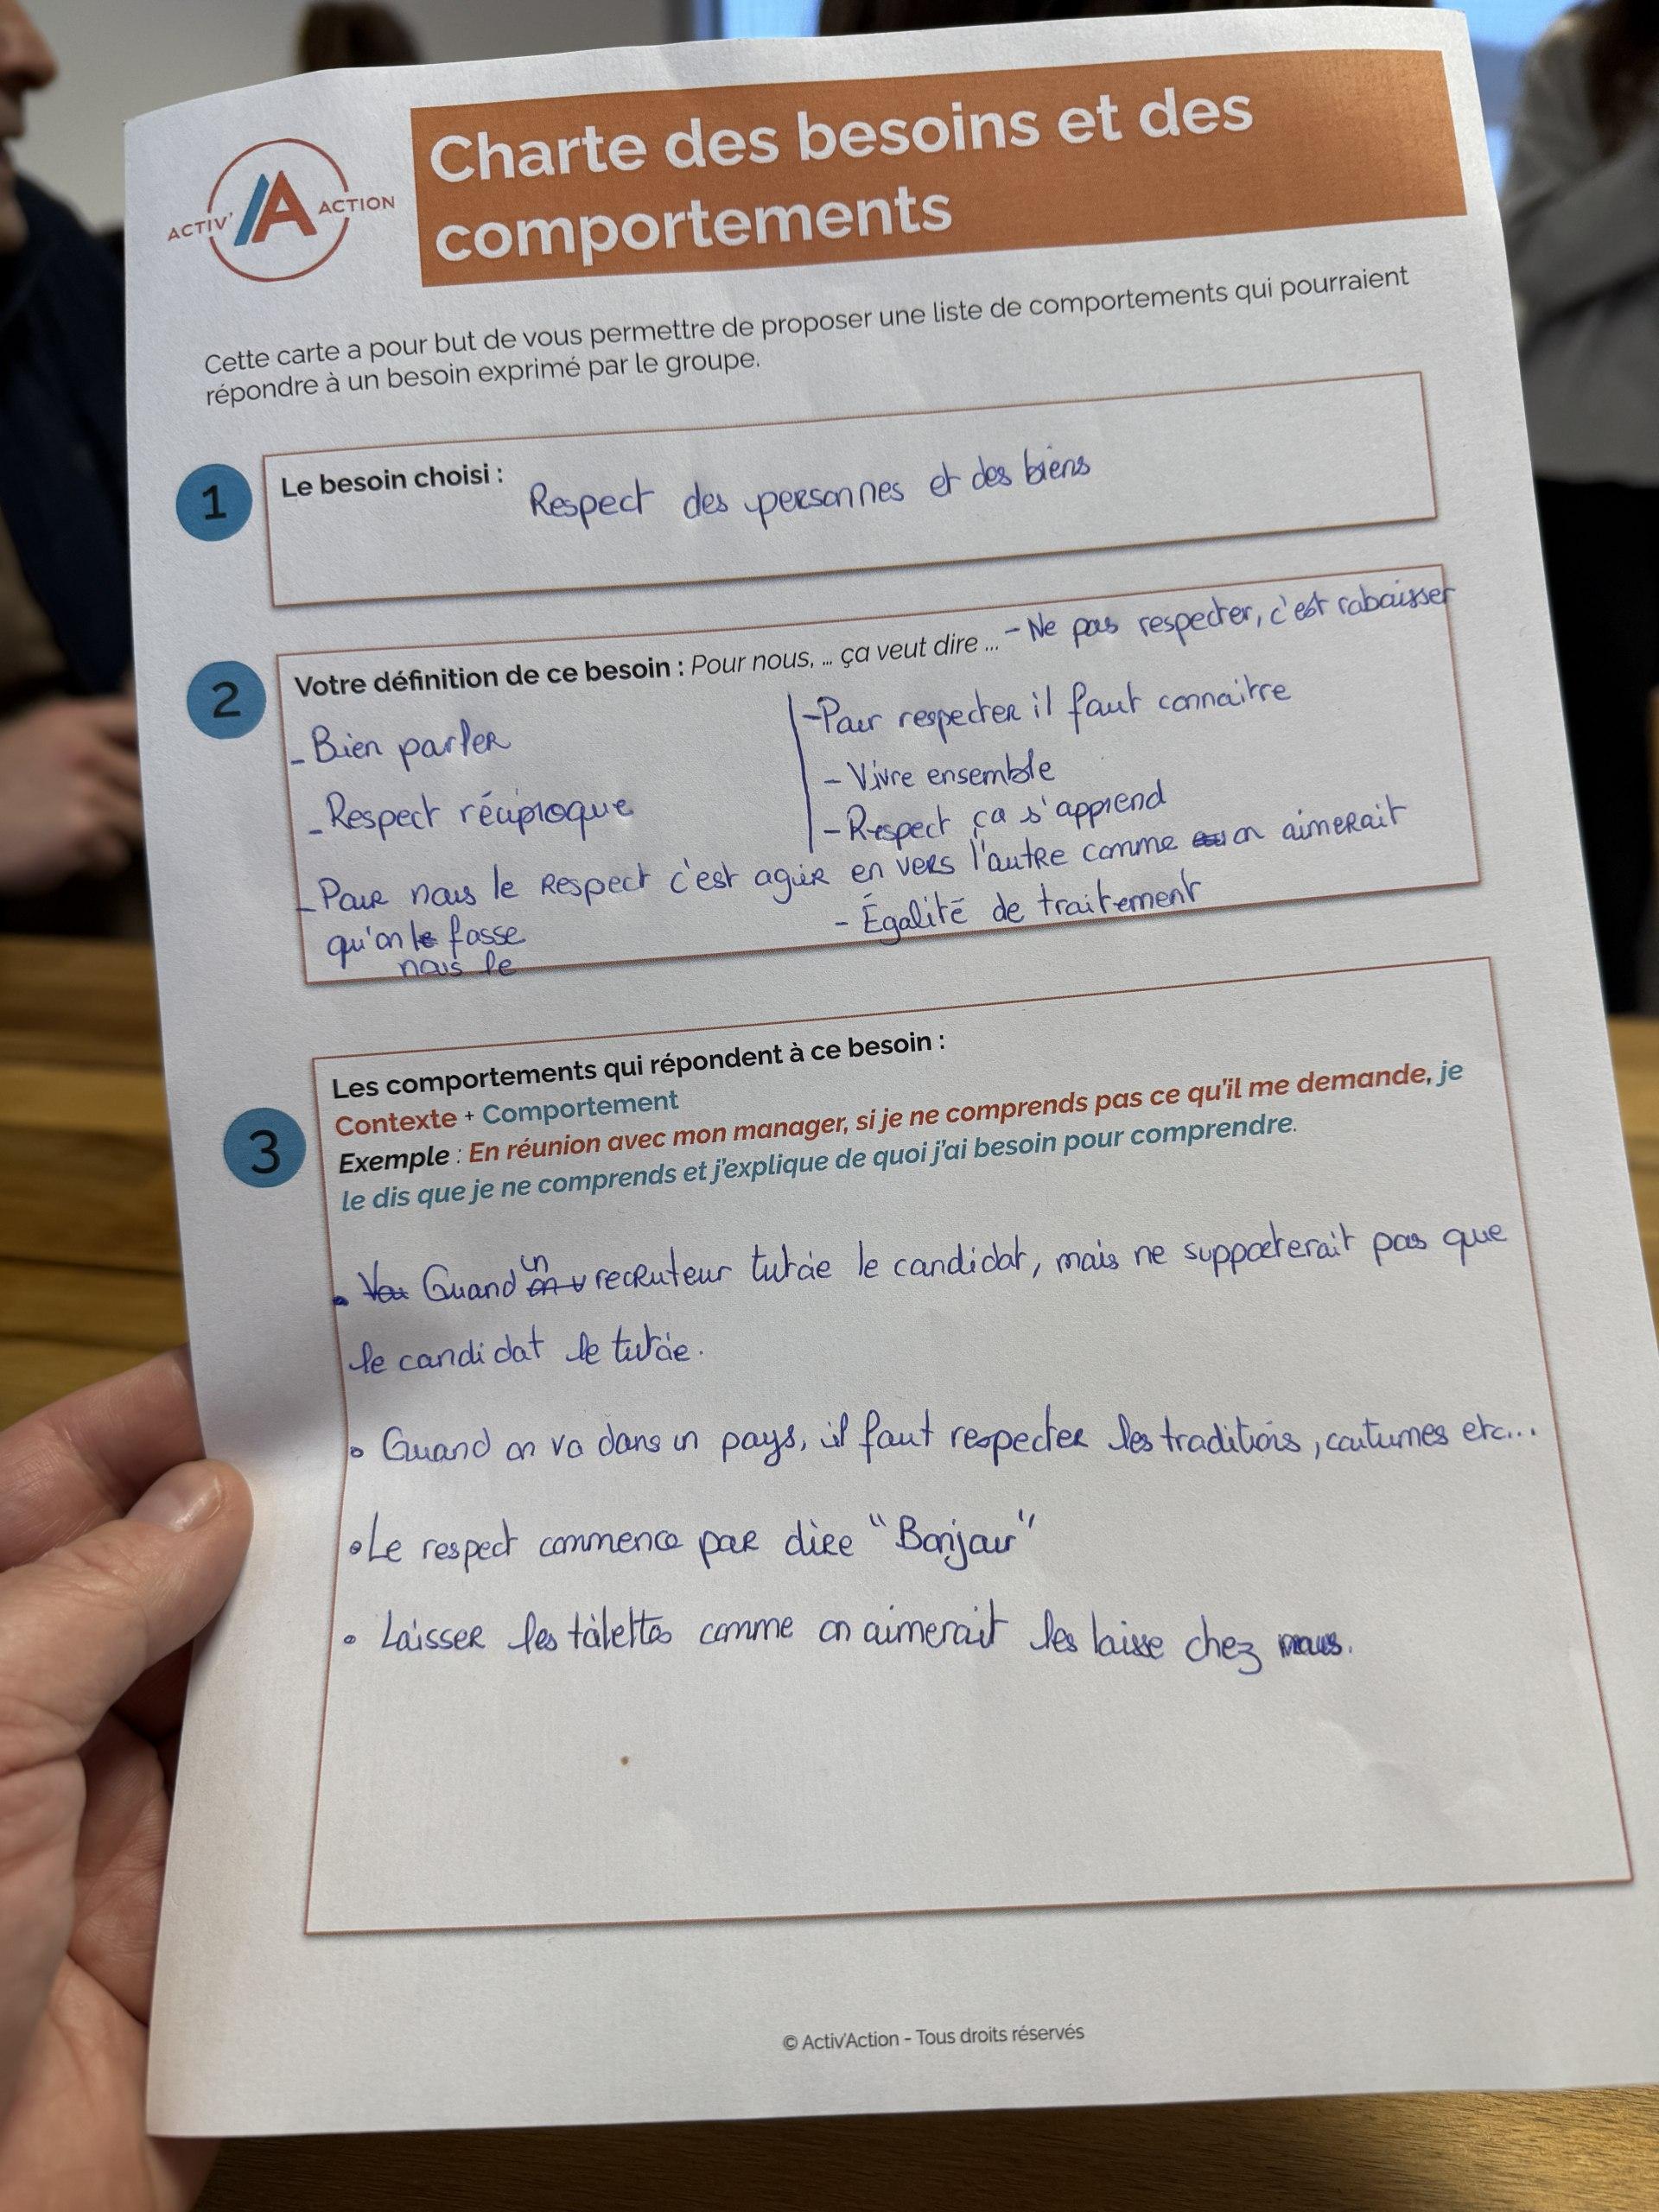 ACTIV' ACTION
Charte des besoins et des
comportements
Cette carte a pour but de vous permettre de proposer une liste de comportements qui pourraient
répondre à un besoin exprimé par le groupe.
1
Le besoin choisi : Respect des personnes et des biens
2
Votre définition de ce besoin : Pour nous, ... ça veut dire ... - Ne pas respecter, c'est rabaisser
- Bien parler
- Respect réciproque
- Pour respecter il faut connaitre
- Vivre ensemble
- Respect ça s'apprend
- Pour nous le Respect c'est agir en vers l'autre comme on aimerait
qu'on le fasse
nous le
- Égalité de traitement
3
Les comportements qui répondent à ce besoin :
Contexte + Comportement
Exemple : En réunion avec mon manager, si je ne comprends pas ce qu'il me demande, je
le dis que je ne comprends et j'explique de quoi j'ai besoin pour comprendre.
• Quand un recruteur tutoie le candidat, mais ne supporterait pas que
le candidat le tutoie.
• Quand on va dans un pays, il faut respecter les traditions, coutumes etc...
• Le respect commence par dire "Bonjour"
• Laisser les toilettes comme on aimerait les laisse chez nous.
© Activ'Action - Tous droits réservés